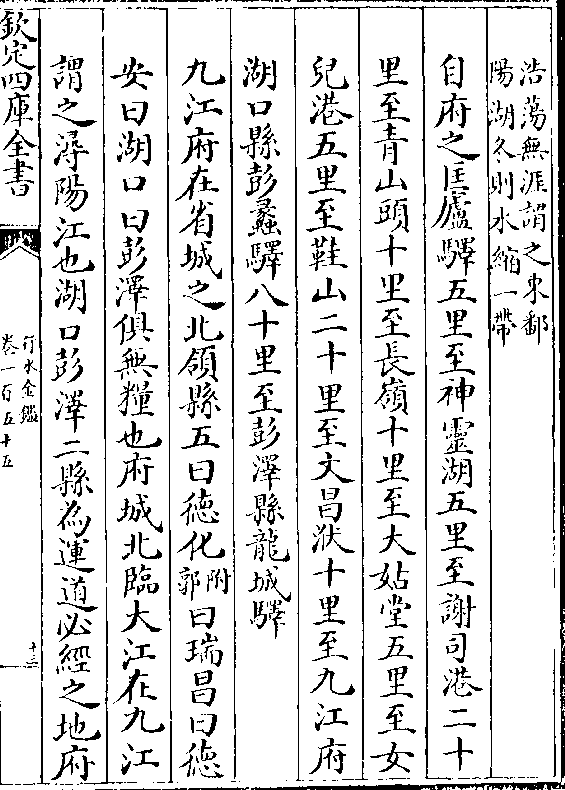 浩蕩無涯謂之東鄱
陽湖冬則水縮一帶
自府之匡廬驛五里至神靈湖五里至謝司港二十
里至青山頭十里至長嶺十里至大姑堂五里至女
兒港五里至鞋山二十里至文昌洑十里至九江府
湖口縣彭蠡驛八十里至彭澤縣龍城驛
九江府在省城之北領縣五曰德化附郭曰瑞昌曰德
安曰湖口曰彭澤俱無糧也府城北臨大江在九江
謂之潯陽江也湖口彭澤二縣為運道必經之地府
欽定四庫全書
行水金鑑
卷一百五十五
十三